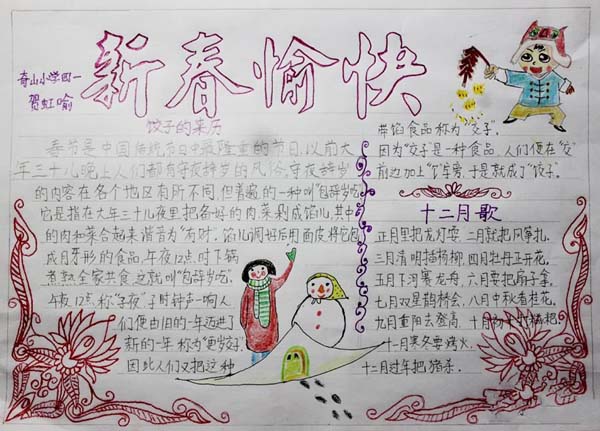 新春愉快
奇山小学四一
贺虹喻
饺子的来历
春节是中国传统节日中最隆重的节日,以前大
年三十儿晚上人们都有守夜辞岁的风俗,守夜辞岁
的内容在各个地区有所不同,但普遍的一种叫"包辞岁吃"
它是指在大年三十儿夜里把各好的肉菜剁成馅儿,其中
的肉和菜合起来谐音为"有财"。馅儿调好后用面皮将它包
成月牙形的食品,午夜12点,时下锅
煮熟全家共食,这就叫"包辞岁吃"。
午夜12点,称"子夜"子时钟声一响人
们便由旧的一年迈进了
新的一年称为"更岁交子"。
因此人们又把这种
带馅食品称为"交子"。
因为"交子"是一种食品,人们便在"交"
前边加上"饣"旁,于是就成了"饺子"。
十二月歌
正月里把龙灯耍 二月就把风筝扎,
三月清明插杨柳 四月牡丹正开花,
五月下河赛龙舟,六月要把扇子拿,
七月双星鹊桥会,八月中秋看桂花,
九月重阳去登高,十月
十一月寒冬要烤火,
十二月过年把猪杀.